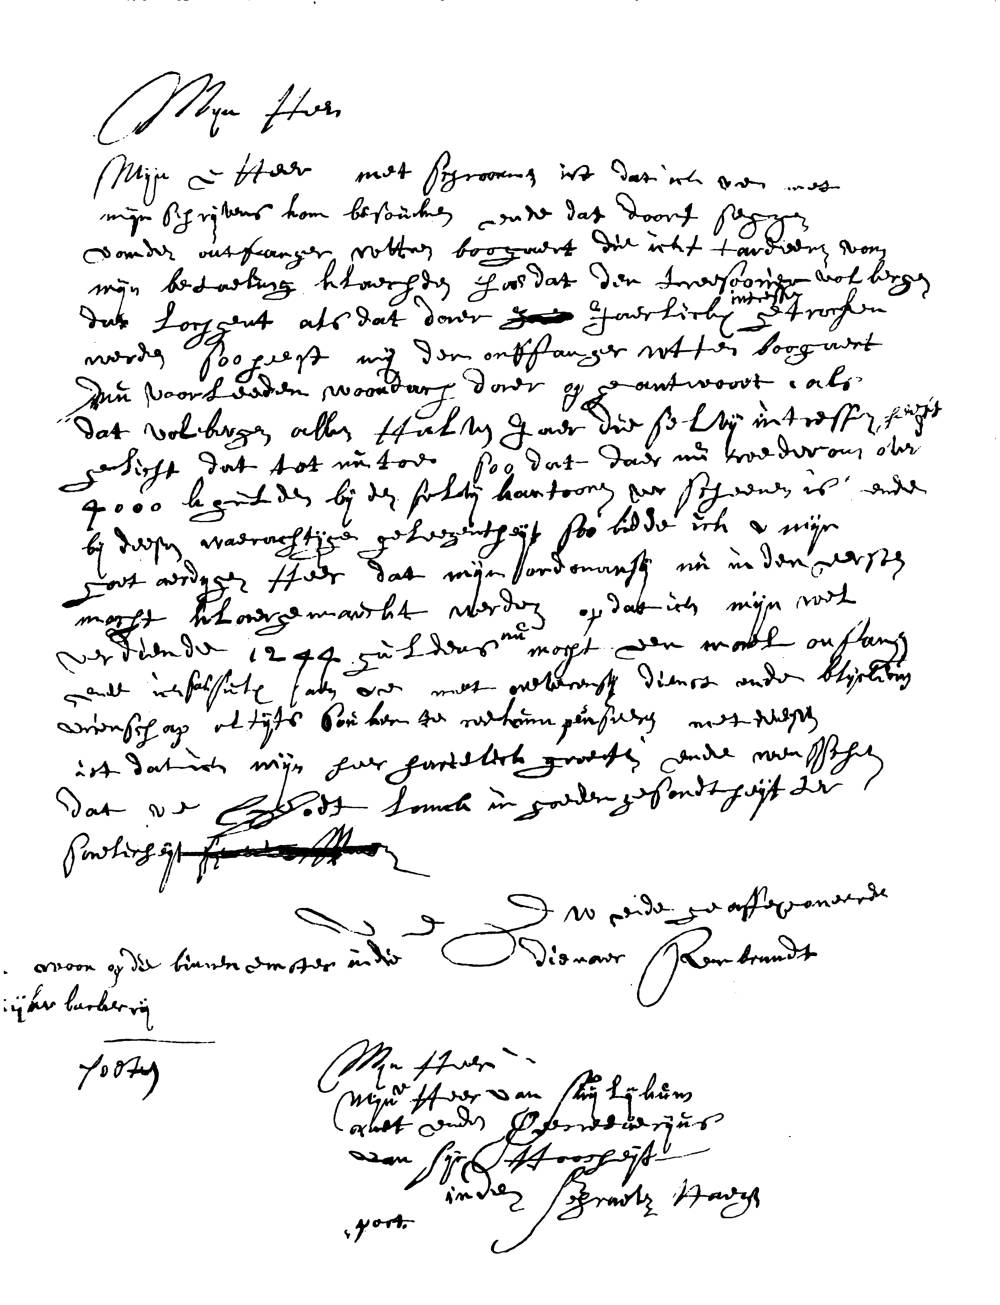 Mijn Heer
Mijn E Heer met schroomen ist dat ick uen met
mijn schrijvens kom besoucken ende dat doort seggen
van den ontfanger wttenboogaert die ickt tardieren van
mijn betaeling klaechden hoe dat den treesoorier volbergen
dat loochgent als dat daer Jaerlickx intresten getrocken
werden soo heeft mij den ontffanger wttenboogaert
nu voorleeden woondach daer op geantwoort als
dat volbergen allen Halven Jaer die selvij intressen heeft
gelicht dat tot nu toe soo dat daer nu wederom over
4000 k gulden bij den selvij kantooren verscheenen is ende
bij deesen waerachtijgen geleegentheijt soo bidde ick u mijn
goet aerdijgen Heer dat mijn ordonansij nu in den eersten
mocht klaergemaeckt werden op dat ick mijn wel
verdiende 1244 guldens nu mocht een mael onfangen
ende ick sal sulx aen uen met reeverensij dienst ende blijcken
vrienschap altijts soucken te reekumpensieren met deesen
ist dat ick mijn heer hartelick groete ende wensschen
dat ue Godt lanck in goeden gesondtheijt ter
saelicheijt
U E Dw eide geaffexoneerde
dienaer Rembrandt
woon op die binnen emster in die
ijker backerij
Mijn Heer
Mijn Heer van Suijlijkum
raet ende Seecreetarijus
van sijn Hoocheijt
in den Schraeven Haech
port.